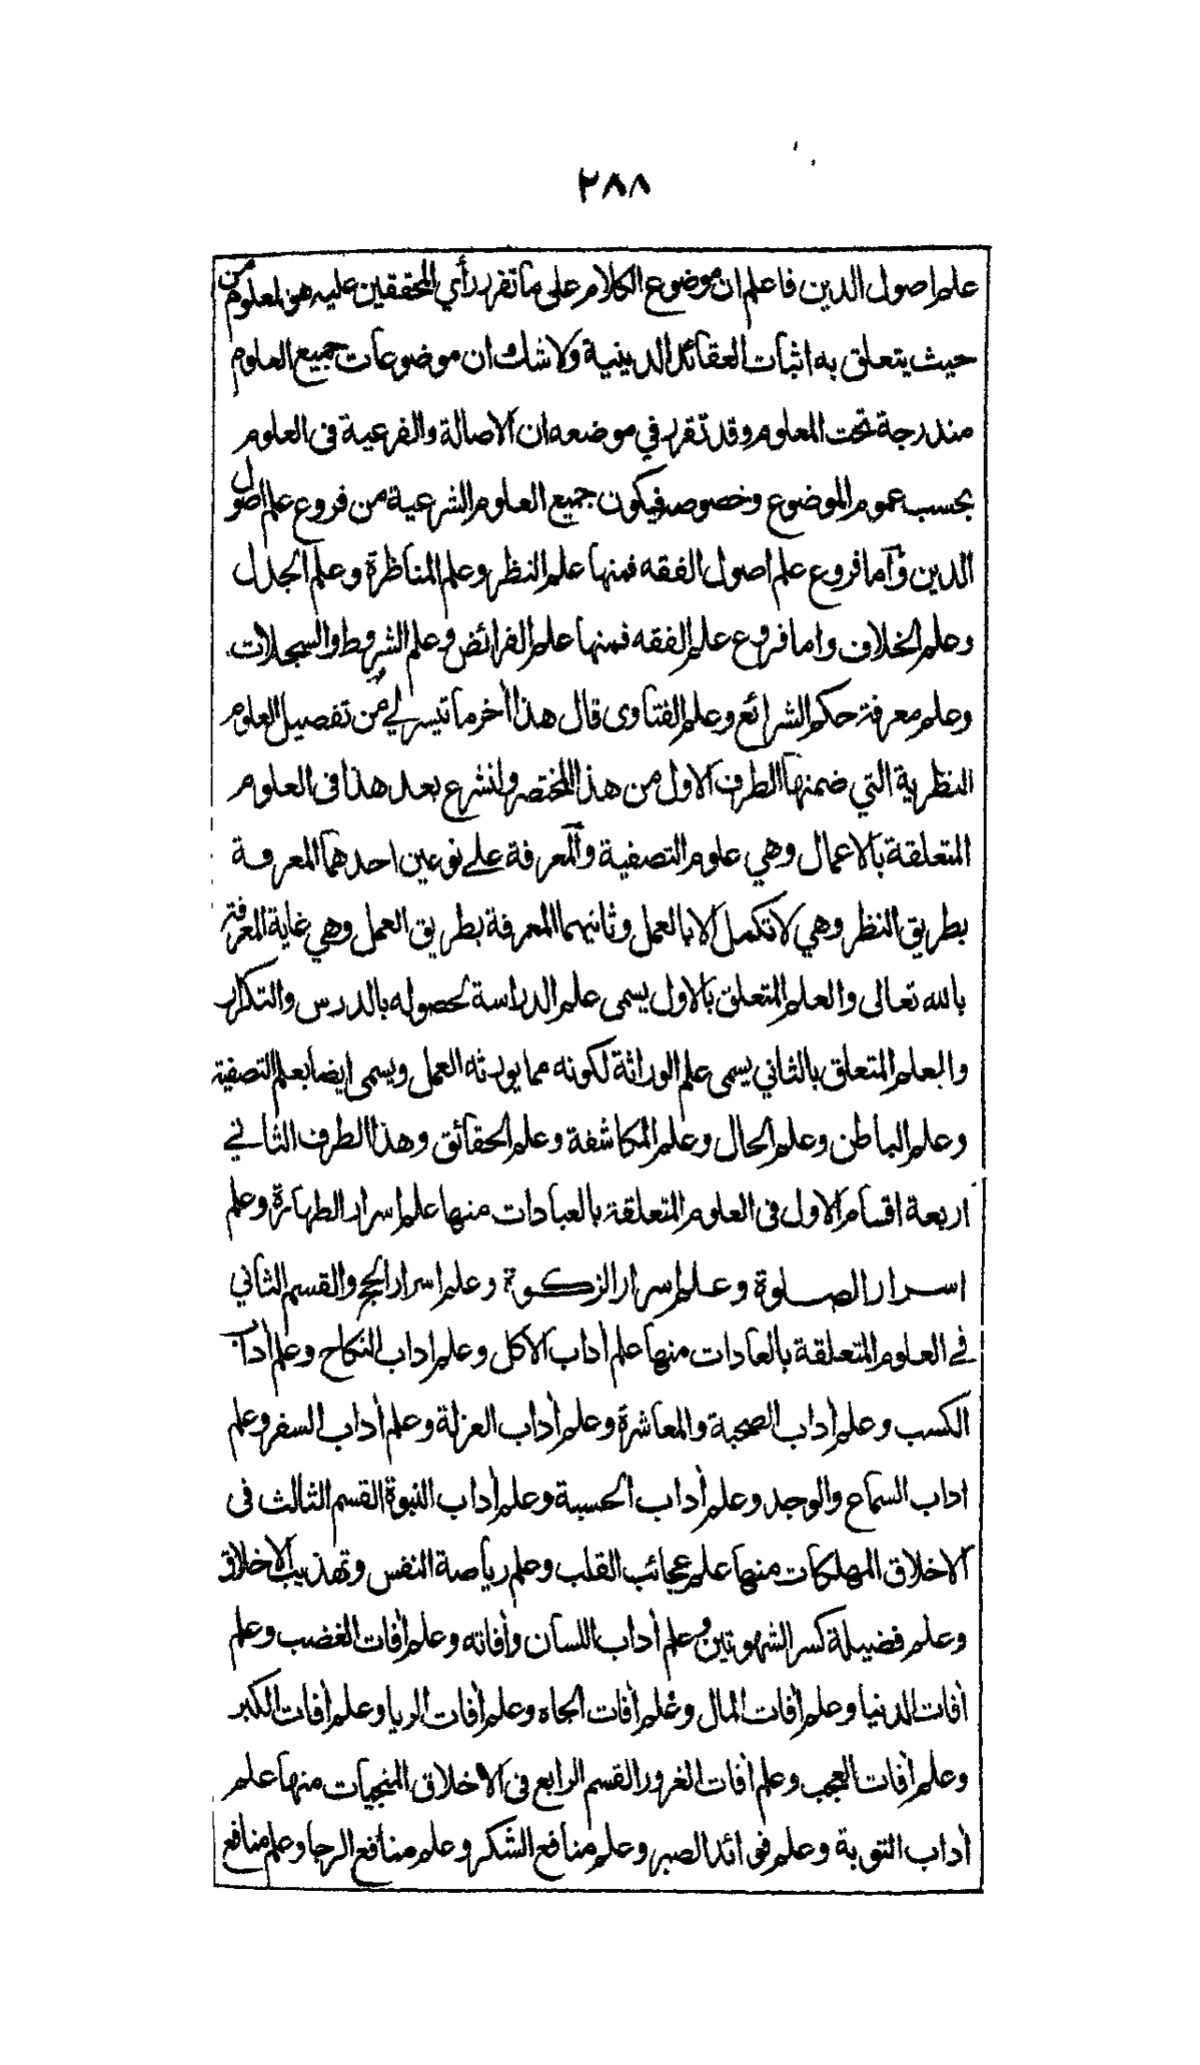 ٢٨٨
علم اصول الدين فاعلم ان موضوع الكلام على ما تقرر رأي المحققين عليه هو المعلوم من
حيث يتعلق به اثبات العقائد الدينية ولا شك ان موضوعات جميع العلوم
مندرجة تحت المعلوم وقد تقرر في موضعه ان الاصالة والفرعية فى العلوم
بحسب عموم الموضوع وخصوصه فيكون جميع العلوم الشرعية من فروع علم اصول
الدين وأما فروع علم اصول الفقه فمنها علم النظر وعلم المناظرة وعلم الجدل
وعلم الخلاف واما فروع علم الفقه فمنها علم الفرائض وعلم الشروط والسجلات
وعلم معرفة حكم الشرائع وعلم الفتاوى قال هذا أخر ما تيسر لي من تفصيل العلوم
النظرية التي ضمنها الطرف الاول من هذا المختصر ولنشرع بعد هذا فى العلوم
المتعلقة بالاعمال وهي علوم التصفية والمعرفة على نوعين احدهما المعرفة
بطريق النظر وهي لا تكمل الا بالعمل وثانيهما المعرفة بطريق العمل وهي غاية المعرفة
بالله تعالى والعلم المتعلق بالاول يسمى علم الدراسة لحصوله بالدرس والتكرار
والعلم المتعلق بالثاني يسمى علم الوراثة لكونه مما يورثه العمل ويسمى ايضا بعلم التصفية
وعلم الباطن وعلم الحال وعلم المكاشفة وعلم الحقائق وهذا الطرف الثاني
اربعة اقسام الاول فى العلوم المتعلقة بالعبادات منها علم اسرار الطهارة وعلم
اسرار الصلوة وعلم اسرار الزكوة وعلم اسرار الحج والقسم الثاني
في العلوم المتعلقة بالعادات منها علم أداب الاكل وعلم اداب النكاح وعلم أداب
الكسب وعلم أداب الصحبة والمعاشرة وعلم أداب العزلة وعلم أداب السفر وعلم
اداب السماع والوجد وعلم أداب الحسبة وعلم أداب النبوة القسم الثالث فى
الاخلاق المهلكات منها علم عجائب القلب وعلم رياضة النفس وتهذيب الاخلاق
وعلم فضيلة كسر الشهوتين وعلم أداب اللسان وأفاته وعلم أفات الغضب وعلم
أفات الدنيا وعلم أفات المال وعلم أفات الجاه وعلم أفات الريا وعلم أفات الكبر
وعلم أفات العجب وعلم أفات الغرور القسم الرابع فى الاخلاق المنجيات منها علم
أداب التوبة وعلم فوائد الصبر وعلم منافع الشكر وعلم منافع الرجا وعلم منافع